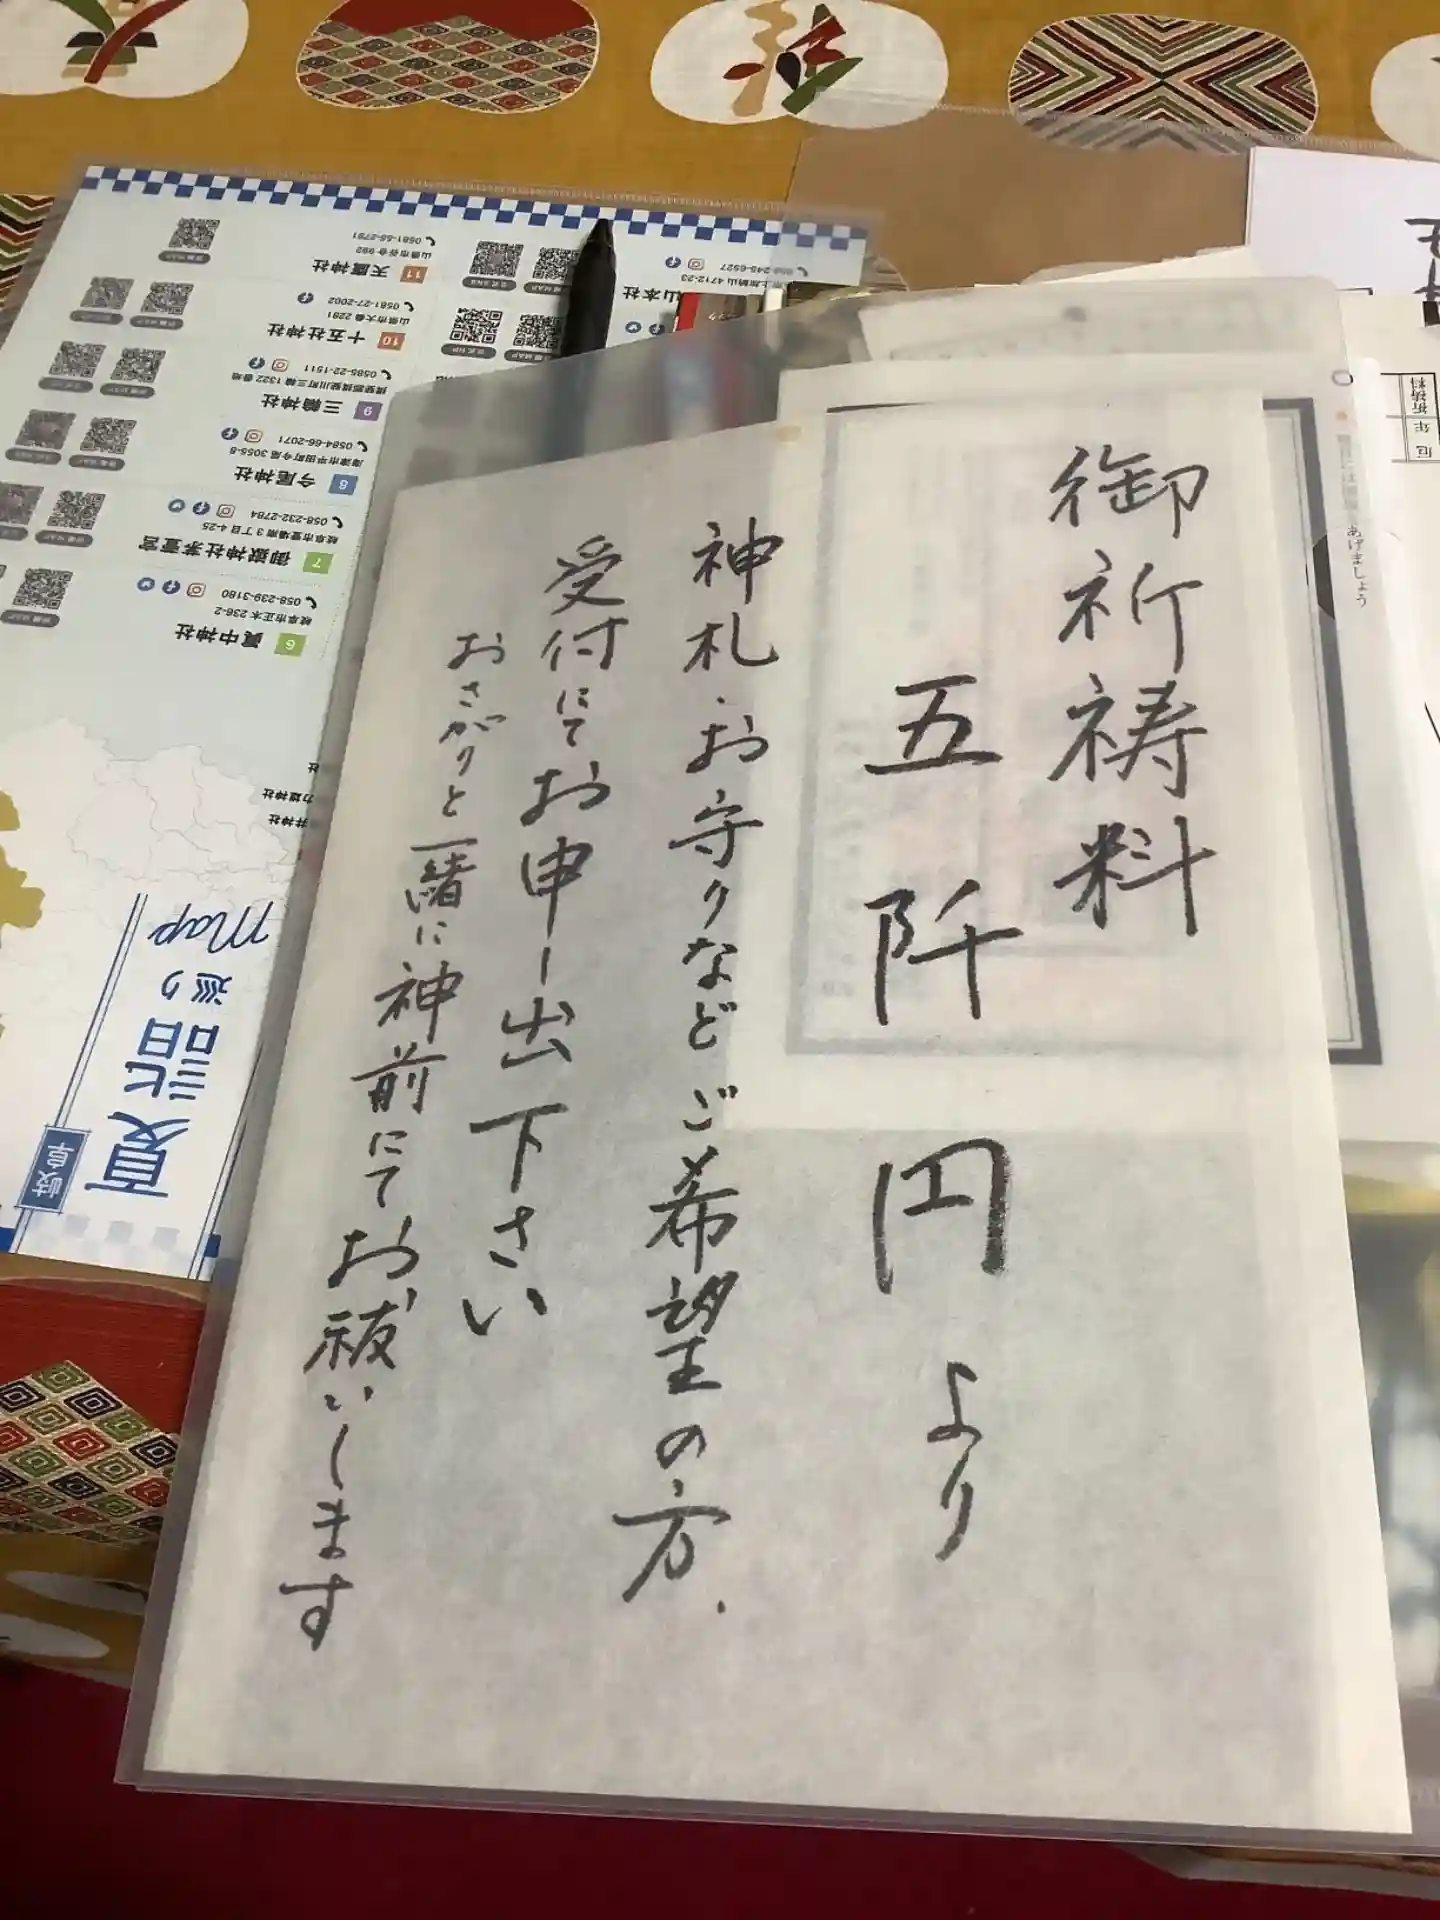 御祈祷料
五阡円より
神札・お守りなどご希望の方、
受付にてお申し出下さい
おさがりと一緒に神前にてお祓いします
あげましょう
祈祷料
厄年
11 天鷹神社
0581-55-2791
10 十五社神社
山県市大桑 2281
0581-27-2002
9 三輪神社
揖斐郡揖斐川町三輪 1322 番地
0585-22-1511
8 今尾神社
海津市平田町今尾 3055-8
0584-66-2071
7 御嶽神社茅萱宮
岐阜市萱場南 3 丁目 4-25
058-232-2784
6 眞中神社
岐阜市正木 236-2
058-239-3180
山本社
上加納山 4712-23
245-6527
力雄神社
井神社
岐阜
夏詣
巡り
Map